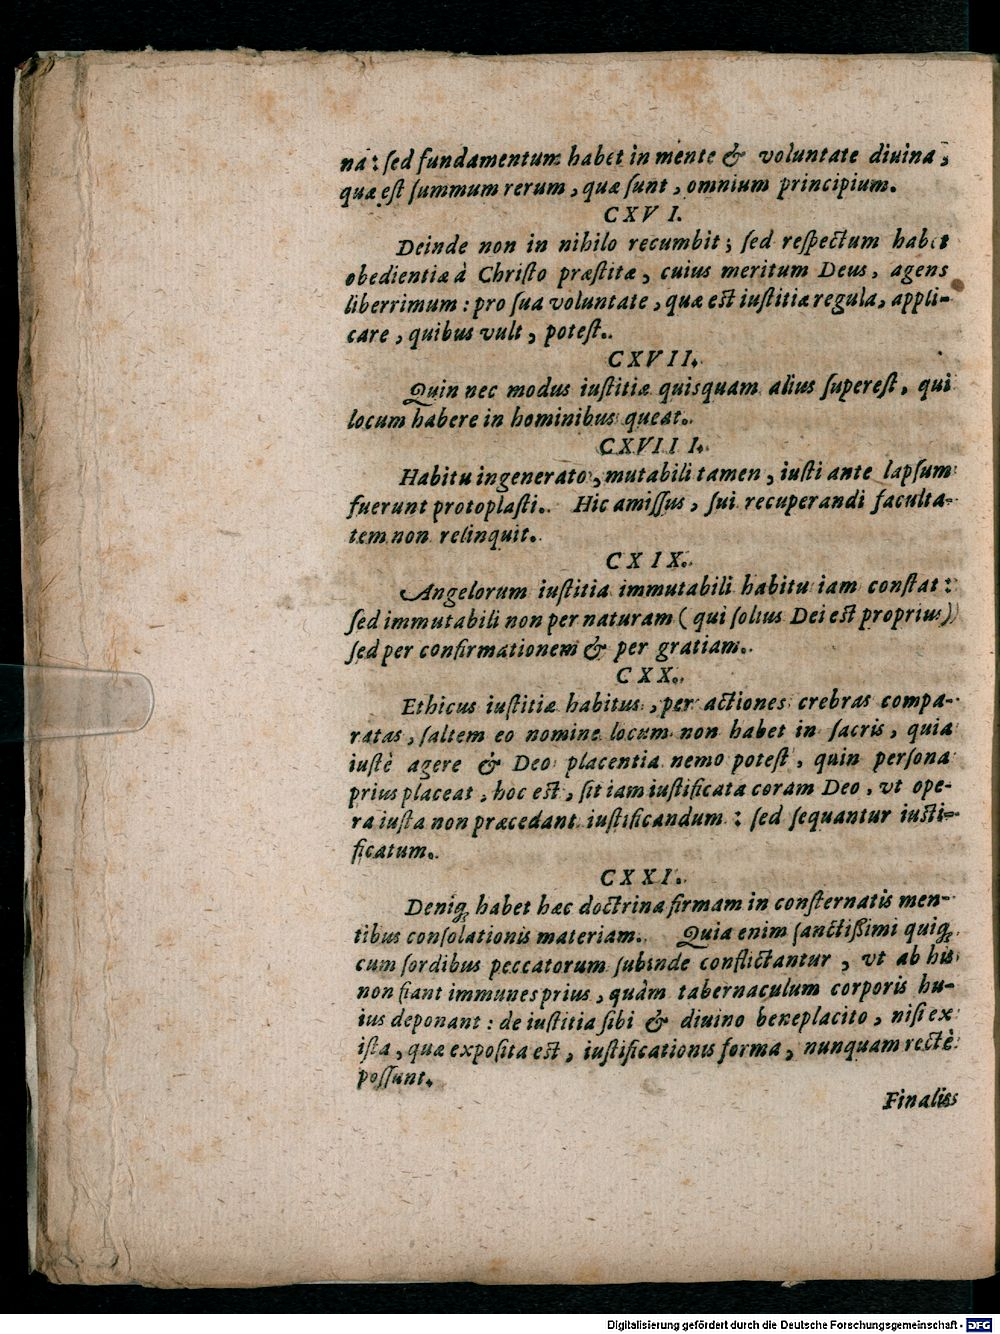 na: sed fundamentum habet in mente & voluntate diuina,
quæ est summum rerum, quæ sunt, omnium principium.
CXVI.
Deinde non in nihilo recumbit; sed respectum habet
obedientiæ à Christo præstitæ, cuius meritum Deus, agens
liberrimum: pro sua voluntate, quæ est iustitiæ regula, appli-
care, quibus vult, potest.
CXVII.
Quin nec modus iustitiæ quisquam alius superest, qui
locum habere in hominibus queat.
CXVIII.
Habitu ingenerato, mutabili tamen, iusti ante lapsum
fuerunt protoplasti. Hic amissus, sui recuperandi faculta-
tem non relinquit.
CXIX.
Angelorum iustitia immutabili habitu iam constat:
sed immutabili non per naturam (qui solius Dei est proprius)
sed per confirmationem & per gratiam.
CXX.
Ethicus iustitiæ habitus, per actiones crebras compa-
ratas, saltem eo nomine locum non habet in sacris, quia
iustè agere & Deo placentia nemo potest, quin persona
prius placeat, hoc est, sit iam iustificata coram Deo, vt ope-
ra iusta non præcedant iustificandum: sed sequantur iusti-
ficatum.
CXXI.
Deniq; habet hæc doctrina firmam in consternatis men-
tibus consolationis materiam. Quia enim sanctißimi quiq;
cum sordibus peccatorum subinde conflictantur, vt ab his
non fiant immunes prius, quàm tabernaculum corporis hu-
ius deponant: de iustitia sibi & diuino beneplacito, nisi ex
ista, quæ exposita est, iustificationis forma, nunquam rectè
possunt.
Finaliss
Digitalisierung gefördert durch die Deutsche Forschungsgemeinschaft - DFG